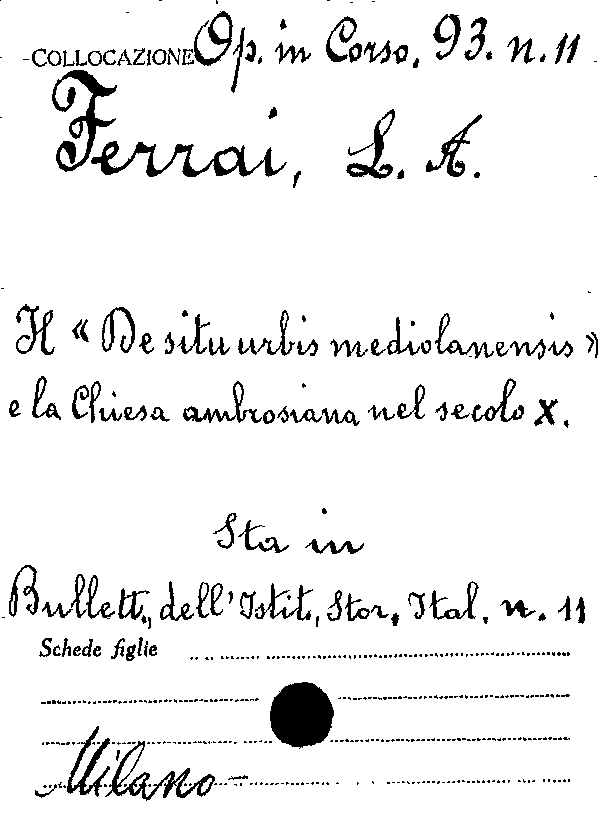 COLLOCAZIONE Op. in Corso. 93. n. 11
Ferrai, L. A.
Il « De situ urbis mediolanensis »
e la Chiesa ambrosiana nel secolo X.
Sta in
Bullett., dell'Istit., Stor., Ital. n. 11
Schede figlie
Milano-